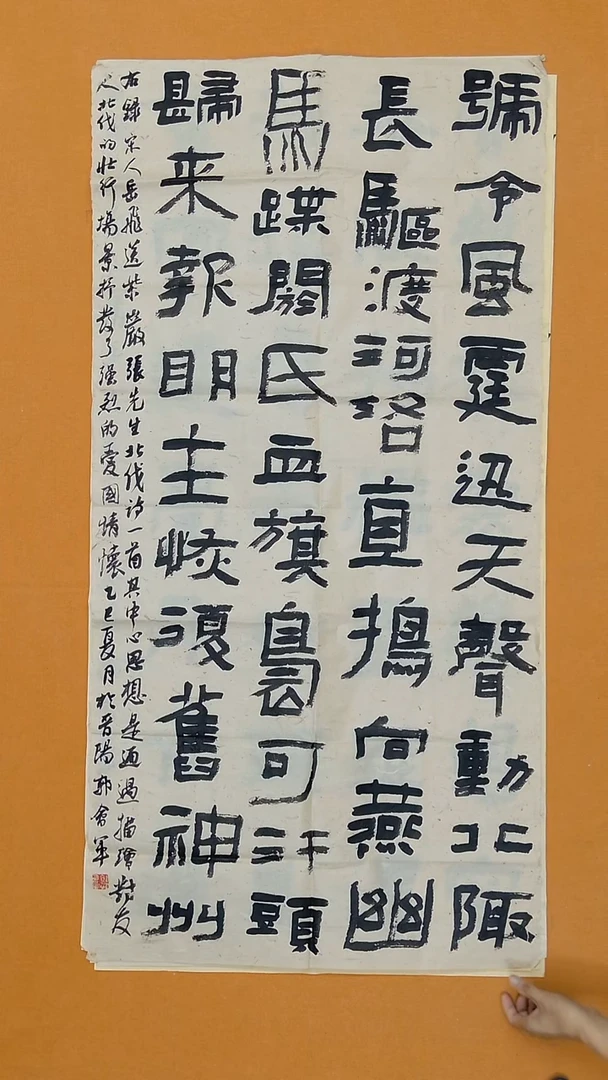 號令風霆迅天聲動北陬
長驅渡河洛直搗向燕幽
馬蹀閼氏血旗梟可汗頭
歸来報明主恢復舊神州
右録宋人岳飛送紫巖張先生北伐诗一首其中心思想是通過描繪對友
人北伐的壯行場景抒發了强烈的愛國情懷乙巳夏月於晉陽郭會軍